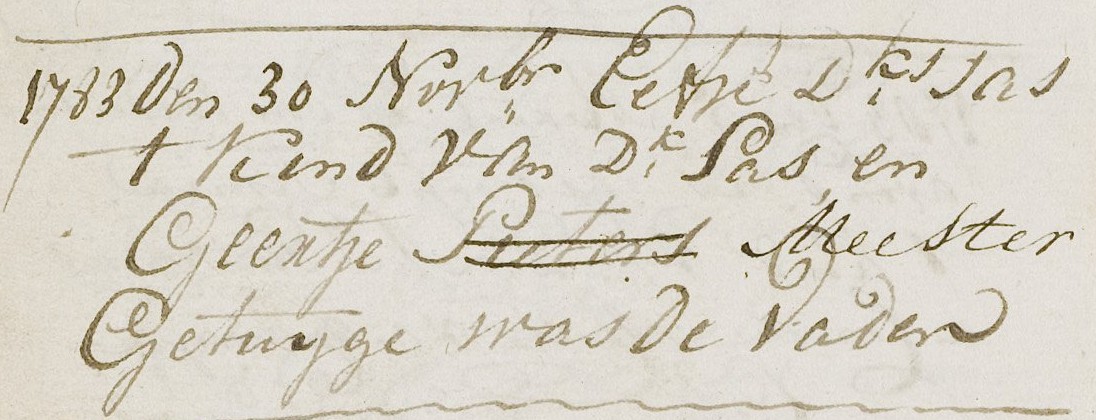 1783 Den 30 Novbr Eefje Dks Pas
t kind van Dk Pas en
Geertje Pieters Meester
Getuyge was de Vader